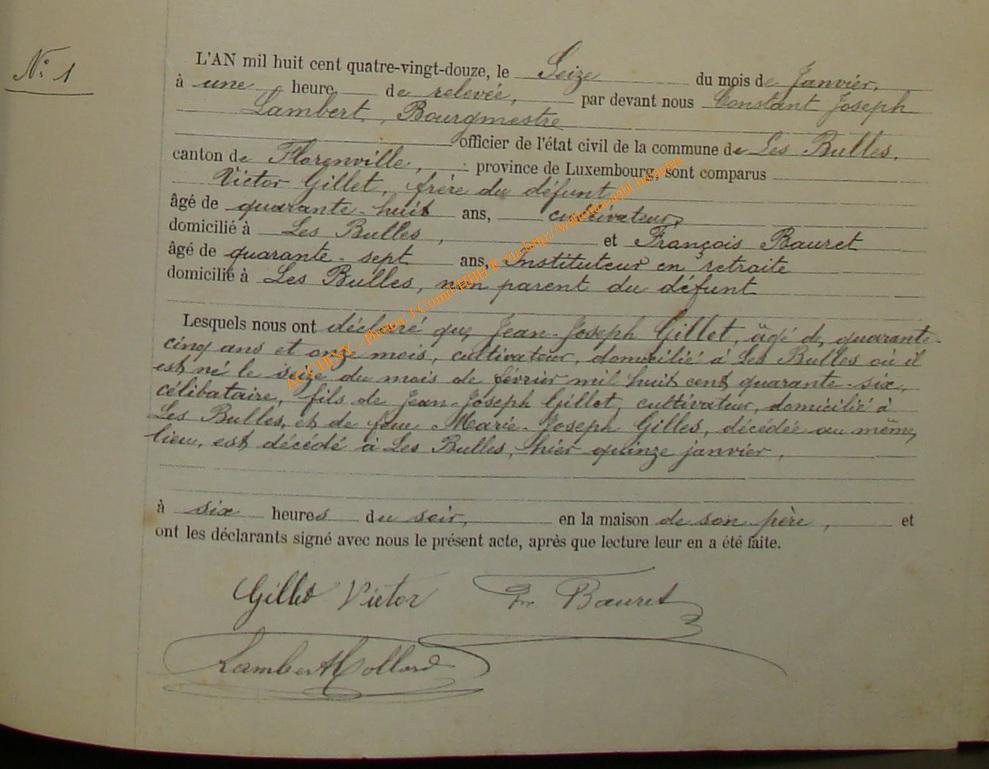 N° 1
L'AN mil huit cent quatre-vingt-douze, le Seize du mois de Janvier,
à une heure de relevée, par devant nous Constant Joseph
Lambert, Bourgmestre
officier de l'état civil de la commune de Les Bulles,
canton de Florenville, province de Luxembourg, sont comparus
Victor Gillet, frère du défunt
âgé de quarante-huit ans, cultivateur,
domicilié à Les Bulles, et François Bauret
âgé de quarante-sept ans, Instituteur en retraite
domicilié à Les Bulles, non parent du défunt
Lesquels nous ont déclaré que Jean-Joseph Gillet, âgé de quarante-
cinq ans et onze mois, cultivateur, domicilié à Les Bulles où il
est né le seize du mois de février mil huit cent quarante-six,
célibataire, fils de Jean-Joseph Gillet, cultivateur, domicilié à
Les Bulles, et de feue Marie-Joseph Gilles, décédée au même
lieu, est décédé à Les Bulles, hier quinze janvier,
à six heures du soir, en la maison de son père, et
ont les déclarants signé avec nous le présent acte, après que lecture leur en a été faite.
Gillet Victor Fr Bauret
Lambert Collard